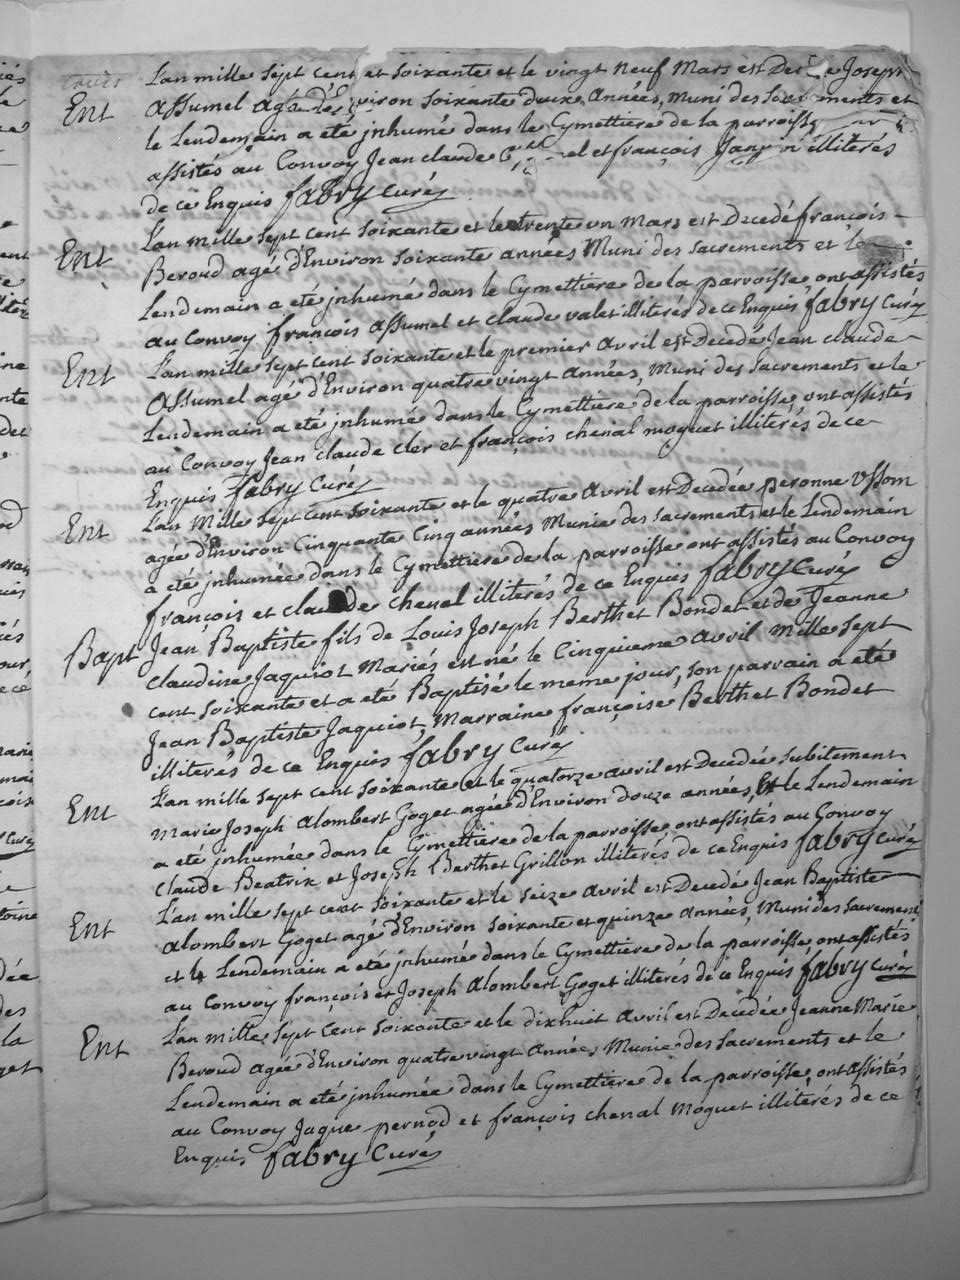 L'an mille sept cent et soixante et le vingt neuf Mars est Joseph
Ent Assumel agé d'Environ soixante deux Années, muni des Sacrements et
le Lendemain a eté jnhumé dans le Cymettiere de la parroisse
assistés au Convoy Jean claude et françois illiterés
de ce Enquis fabry Curé
Ent L'an mille sept cent soixante et le trente un Mars est Decedé françois
Beroud agé d'Environ soixante années Muni des sacrements et le
Lendemain a eté jnhumé dans le Cymettiere de la parroisse, ont assistés
au Convoy françois Assumel et claude valet illiterés de ce Enquis fabry Curé
Ent L'an mille sept cent soixante et le premier avril est Decedé Jean claude
Assumel agé d'Environ quatre vingt Années, Muni des Sacrements et le
Lendemain a eté jnhumé dans le Cymettiere de la parroisse, ont assistés
au Convoy Jean claude cler et françois chenal moguet illiterés de ce
Enquis fabry Curé
Ent L'an Mille Sept Cent Soixante et le quatre Avril est Decedée peronne Ussom
agée d'Environ Cinquante Cinq années Munie des Sacrements et le Lendemain
a eté jnhumée dans le Cymettiere de la parroisse ont assistés au Convoy
françois et claude chenal illiterés de ce Enquis fabry Curé
Bapt Jean Baptiste fils de Louis Joseph Berthet Bondet et de Jeanne
claudine Jaquiot Mariés est né le Cinquieme Avril Mille Sept
cent soixante et a eté Baptisé le meme jour, son parrain a eté
Jean Baptiste Jaquiot, Marraine françoise Berthet Bondet
illiterés de ce Enquis fabry Curé
Ent L'an mille sept cent soixante et le quatorze avril est Decedée subitement
Marie Joseph Alombert Goget agée d'Environ douze années, Et le Lendemain
a eté jnhumée dans le Cymettiere de la parroisse, ont assistés au Convoy
Claude Beatrix et Joseph Berthet Grillon illiterés de ce Enquis fabry Curé
Ent L'an mille sept cent soixante et le seize Avril est Decedé Jean Baptiste
Alombert Goget agé d'Environ Soixante et quinze années, Muni des Sacrements
et le Lendemain a eté jnhumé dans le Cymettiere de la parroisse, ont assistés
au Convoy françois et Joseph Alombert Goget illiterés de ce Enquis fabry Curé
Ent L'an mille, Sept Cent Soixante et le dixhuit Avril est Decedée Jeanne Marie
Beroud agée d'Environ quatre vingt Années, Munie des Sacrements et le
Lendemain a eté jnhumée dans le Cymettiere de la parroisse, ont assistés
au Convoy Jaque pernod et françois chenal Moguet illiterés de ce
Enquis fabry Curé